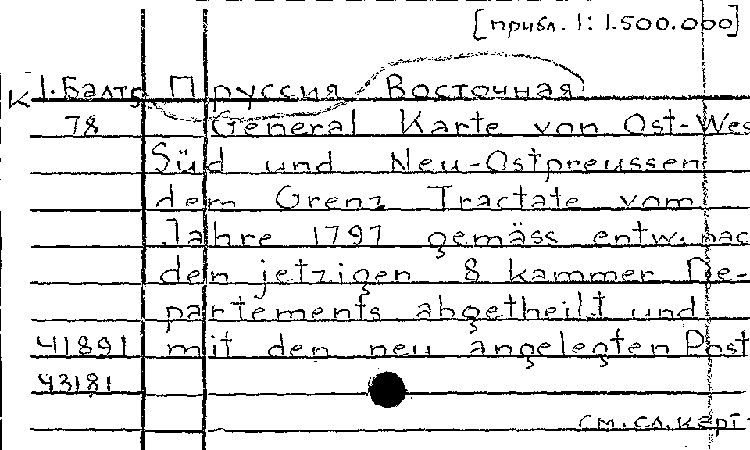 [прибл. 1: 1.500.000]
К 1. Балт. Пруссия Восточная
78 General Karte von Ost-Wes
Süd und Neu-Ostpreussen
dem Grenz Tractate vom
Jahre 1797 gemäss entw. nac
den jetzigen 8 kammer De-
partements abgetheilt und
41891 mit den neu angelegten Post
43181
см. сл. карт